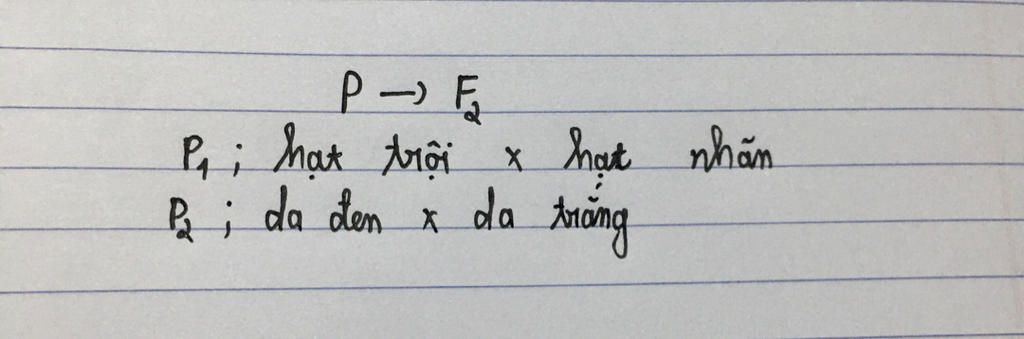 P → F₂
P₁ ; hạt trội x hạt nhãn
P₂ ; da đen x da trắng